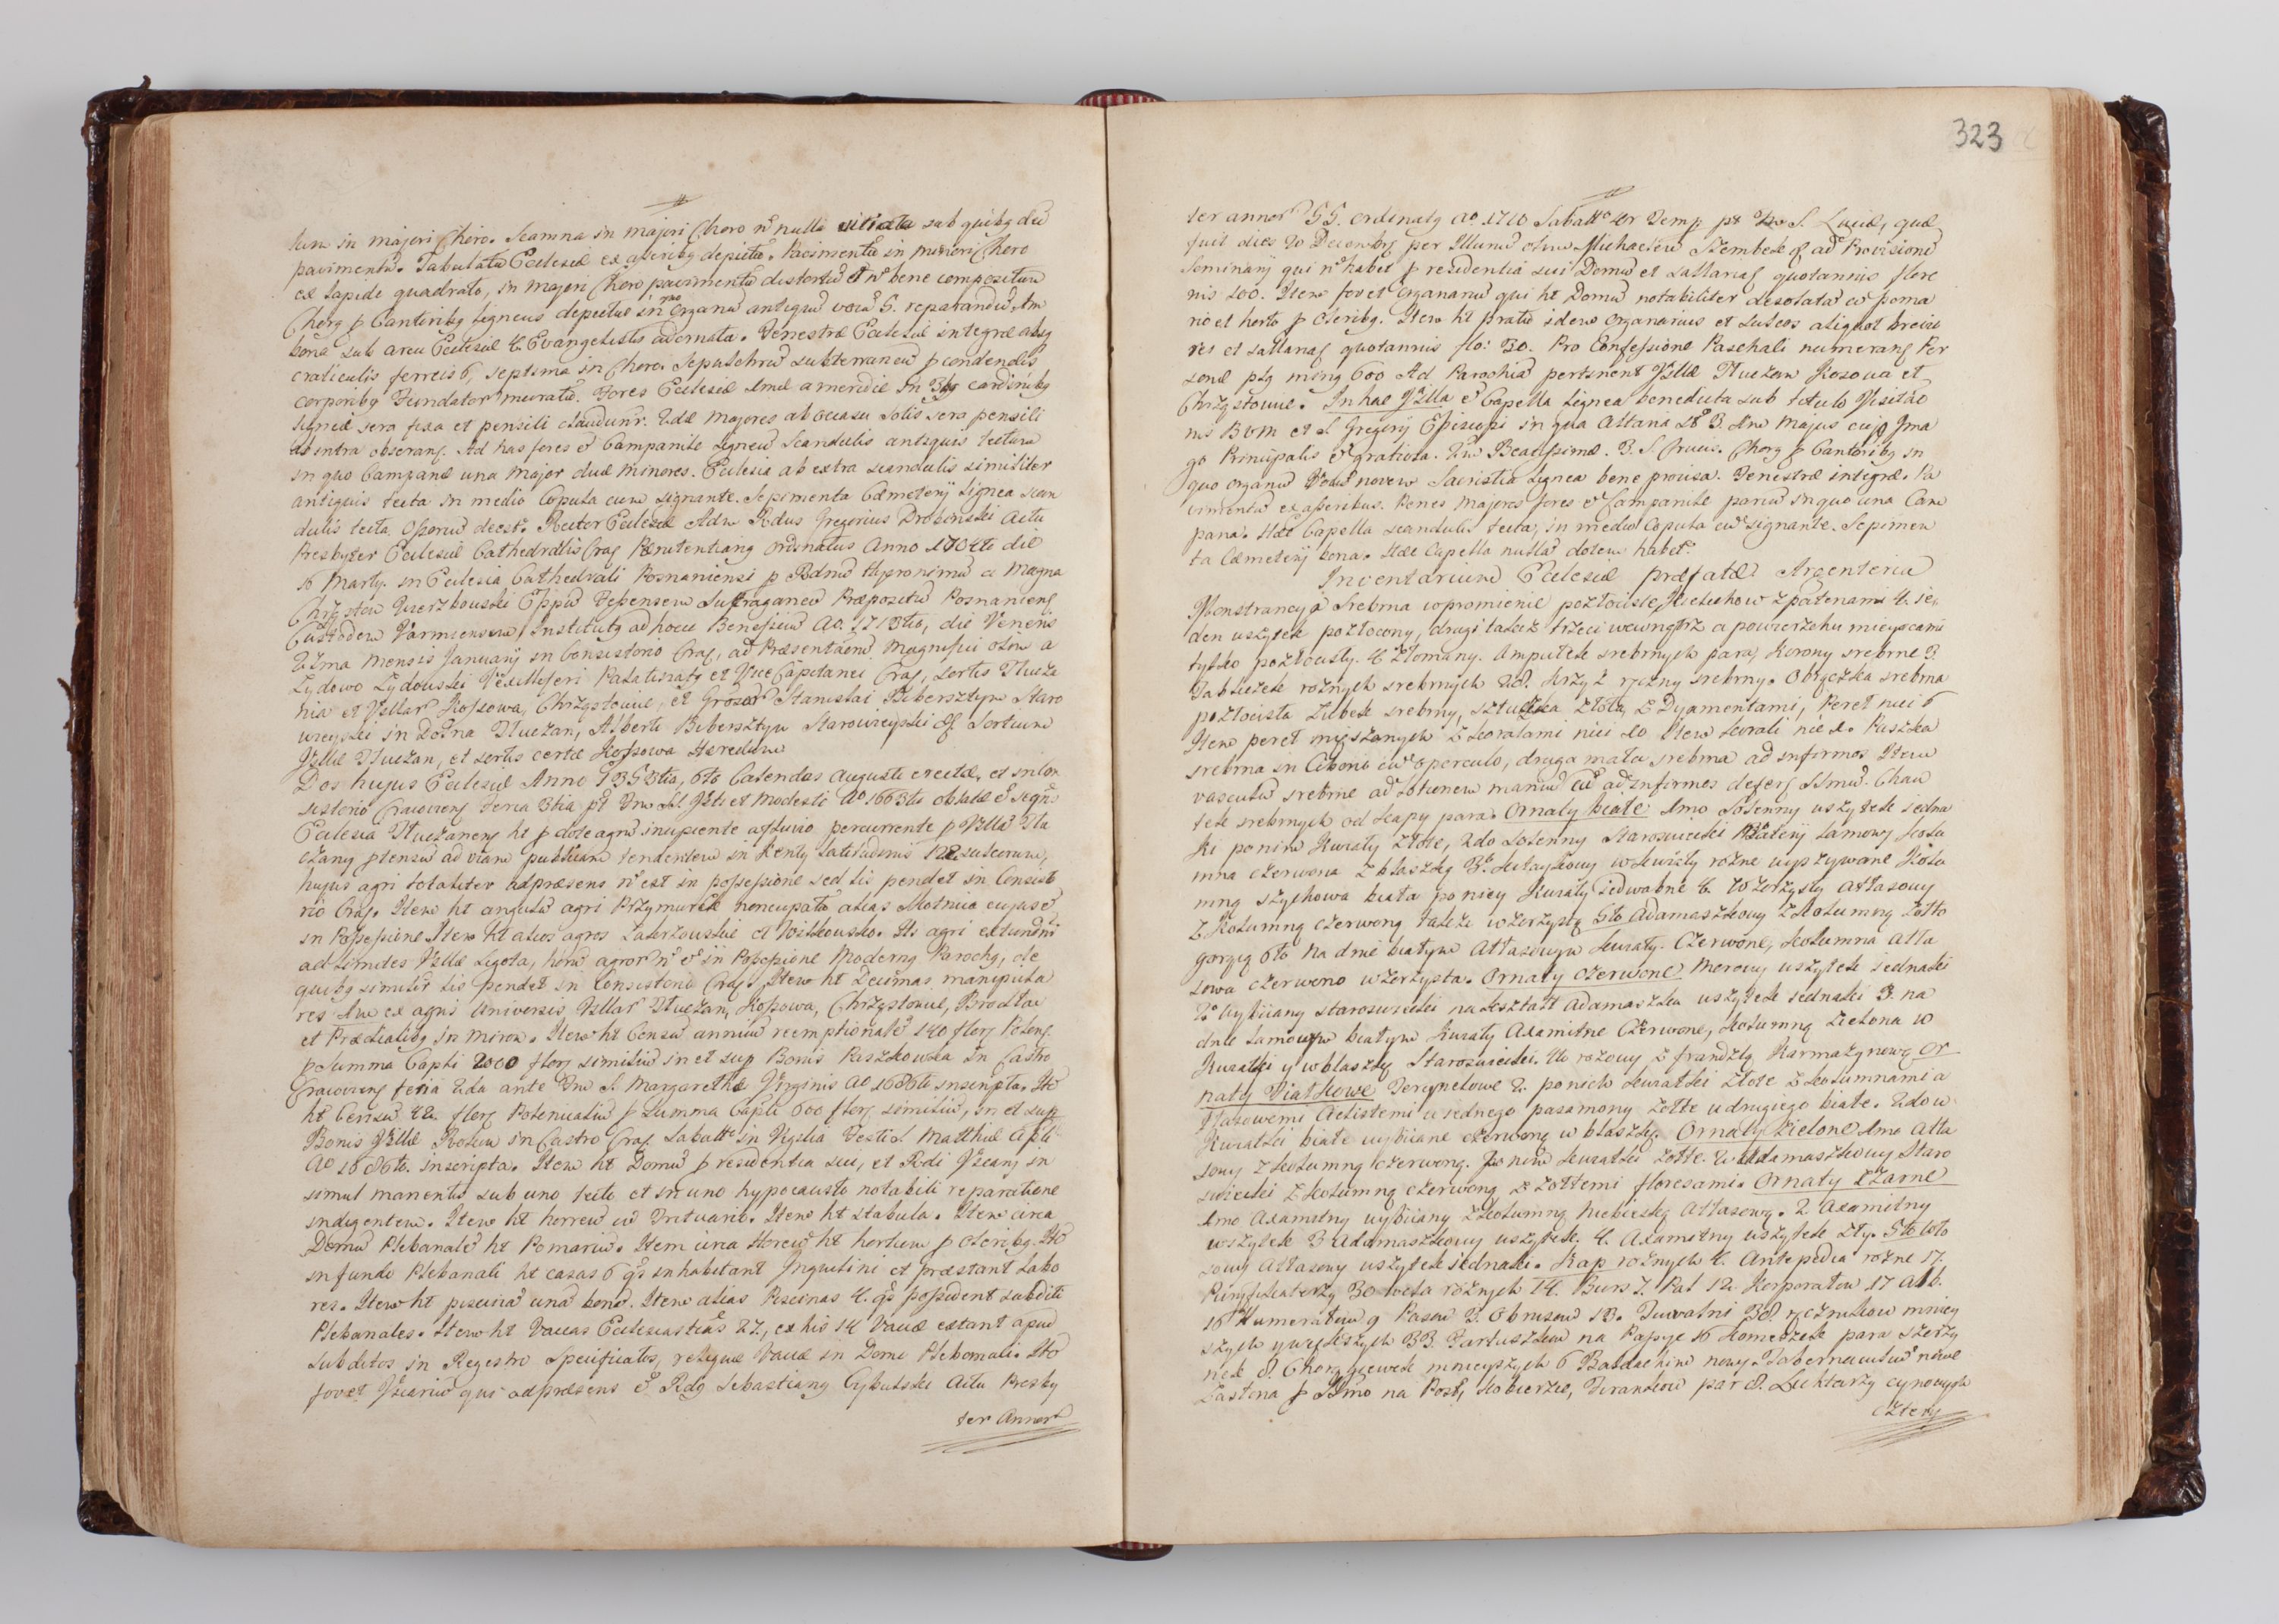 tum in majori Choro. Scamna in majori Choro nō nulla vitiata sub quibꝯ deē
pavimentū. Tabulatū Ecclesiæ ex asseribꝯ depictū. Pavimentū in minori Choro
ex lapide quadrato, in majori Choro pavimentū distortū et nō bene compositum
Chorꝯ p Cantoribꝯ ligneus depictus in quo Organū antiquū vocū 5. reparandū. Am
bona sub arcu Ecclesiæ 4 Evangelistis adornata. Fenestræ Ecclesiæ integræ absq
craticulis ferreis 6, septima in Choro. Sepulchrū subterraneū p condendis
corporibꝯ Fundator muratū. Fores Ecclesiæ 1mæ a meridie in 3bꝯ cardinibꝯ
ligneæ sera fixa et pensili claudunr. 2dæ majores ab occasu solis sera pensili
ab intra obserang. Ad has fores ē Campanile ligneū scandulis antiquis tectum
in quo Campanæ una major duæ minores. Ecclesia ab extra scandulis similiter
antiquis tecta in medio Copula cum signante. Sepimenta Cæmeterij lignea scan
dulis tecta, Ossoriū deest. Rector Ecclesiæ Adm Rdus Gregorius Drobinski Actu
Presbyter Ecclesiæ Cathedralis Crac Pænitentiarꝯ ordinatus Anno 1704to die
16 Martij. in Ecclesia Cathedrali Posnaniensi p Rdmū Hyeronimū a Magna
Chrząstow Wierzbowski Eppū Fessensem Suffraganeū Præpositū Posnanieng
Custodem Varmiensem Institutꝯ ad hocce Beneficiū Ao. 1713tio, die Veneris
27ma Mensis Januarij in Consistorio Crac, ad Præsentāōem Magnifici olim a
Zydowo Zydowski Vexilliferi Palatinatꝯ et Vice Capitanei Crac, sortis Tłucza
nia et Villar Kossowa, Chrząstowice, et Grosor Stanislai Bibersztyn Staro
wieyski in Dolna Tłuczan, Alberti Bibersztyn Starowieyski Sortium
Villæ Tłuczan, et sortis certæ Kossowa Hæredum
Dos hujus Ecclesiæ Anno 1353tia, 6to Calendas Augusti erectæ, et in Con
sistorio Cracovieng Feria 3tia pt Fm SS. Viti et Modesti Ao 1663tio oblatæ ē seqns
Ecclesia Tłuczaneng ht p dote agrū incipiente a fluvio percurrente p Villā Tłu
czany ptensū ad viam publicam tendentem in Kenty latitudinis 12 sulcorum,
hujus agri totaliter ad præsens nō est in possessione sed lis pendet in Consisto
rio Crac. Item ht angulū agri Przymurek noncupatū alias Motnica cujus ē
in Possessione. Item ht alios agros Laskowskie et Witkowsko. Hi agri extendunr
ad limites Villæ Ligota, horū agror nō ē in Possessione Modernꝯ Parochꝯ, de
quibꝯ similiter lis pendet in Consistorio Crac. Item ht Decimas manipula
res 1mo ex agris universis Villar Tłuczan, Kossowa, Chrząstowice, Brodła
et Prædialibꝯ in Miron. Item ht Censū annuū reemptionalē 140 flor Polon
p Summa Capli 2000 flor similiū in et sup Bonis Paszkowka in Castro
Cracovieng feria 2da ante Fm S. Margarethæ Virginis Ao 1686to inscripta. Itē
ht Censū 42. flor Polonicaliū p Summa Capli 600 flor similiū, in et sup
Bonis Villæ Roków in Castro Crac Sabatto in Vigilia Festi S. Matthiæ Apli
Ao 1686to. inscripta. Item ht Domū p residentia sui, et Rdi Vicarij in
simul manentis sub uno tecto et in uno hypocausto notabili reparatione
indigentem. Item ht horreū cū Trituario. Item ht stabula. Item circa
Domū Plebanalē ht Pomariū. Item circa Horreū ht hortum p Oleribꝯ. Itē
in fundo Plebanali ht casas 6 qs inhabitant Inquilini et præstant labo
res. Item ht piscinā unā bonā. Item alias Piscinas 4. qs possident subditi
Plebanales. Item ht Vaccas Ecclesiasticas 27, ex his 14 Vaccæ extant apud
subditos in Regestro specificatos, reliquæ Vaccæ in Domo Plebanali. Itē
fovet Vicariū qui ad præsens ē Rdꝯ Sebastianꝯ Cybulski Actu Presby
ter Annor
323
ter annor 55. ordinatꝯ Ao. 1710 Sabatto 4r Temp pt Fm S. Luciæ, quæ
fuit dies 20 Decembrꝯ per Illumū olim Michaelem Szembek ad Provisionē
Seminarij qui nō habet p residentia sui Domū et sallariaꝯ quotannis flore
nis 100. Item fovet Organariū qui ht Domū notabiliter desolatā cū poma
rio et horto p Oleribꝯ. Item ht pratū idem Organarius et sulcos aliquot brevio
res et sallariaꝯ quotannis flo: 30. Pro Confessione Paschali numerang Per
sonæ plꝯ minꝯ 600 Ad Parochiā pertinent Villæ Tłuczan Kosowa et
Chrząstowice. In hac Villa ē Capella lignea benedicta sub titulo Visitāo
nis BVM et S. Gregorij Episcopi in qua Altaria st 3. 1mū majus cujꝯ Ima
go Principalis ē gratiosa. 2m Beatissimæ. 3. S. Crucis. Chorꝯ p Cantoribꝯ in
quo Organū Vocū novem Sacristia lignea bene provisa. Fenestræ integræ. Pa
vimentū ex asseribus. Penes majores fores ē Campanile parvū in quo una Cam
pana. Hæc Capella scandulis tecta, in medio Copula cū signante. Sepimen
ta Cæmeterij bona. Hæc Capella nullā dotem habet.
Inventarium Ecclesiæ præfatæ Argenteria
Monstrancya Srebrna w promienie pozłocista, Kielichow z patenami 4. Je
den wszytek pozłocony, drugi także trzeci wewnątrz a powierzchu mieyscami
tylko pozłocisty. 4 złomany. Ampułek srebrnych para, Korony srebrne 3.
Tabliczek roznych srebrnych 28. Krzyż ręczny srebrny. Obrączka srebrna
pozłocista Kubek srebrny, sztuczka złota z Dyamentami, Pereł nici 6
Item pereł mięszanych z koralami nici 10 Item korali nić 1. Puszka
srebrna in Ciborio cū operculo, druga mała srebrna ad infirmos Item
vasculū srebrne ad lotionem manuū cū ad infirmos defere SSmū. Chaw
tek srebrnych od kapy para. Ornaty białe 1mo Sosenny wszytek iedna
ki po nim kwiaty złote, 2do Sosenny Staroswiecki Materij lamowey kolu
mna czerwona z blaszką 3. kitaykowy w kwiaty rożne wyszywane kolu
mną szychowa biała po niey kwiaty iedwabne 4. Wzorzysty Attasowy
z kolumną czerwoną także wzorzystą 5to Adamaszkowy z kolumną żołto
gorącą 6to na dnie białym Attasowym kwiaty czerwone, kolumna atta
sowa czerwono wzorzysta. Ornaty czerwone Morowy wszytek iednaki
2o Wybiiany staroswiecki na kształt Adamaszku wszytek iednaki 3. na
dnie lamowym białym kwiaty Axamitne Czerwone, kolumną zielona w
kwiatki y w blaszkę Staroswiecki. 4to rożowy z frandzlą karmazynową Or
naty Fiałkowe Ferynelowe 2. po nich kwiatki złote z kolumnami a
ttasowemi Aelistemi u iednego pasamony żołte u drugiego białe. 2do w
kwiatki białe wybiiane czerwoną w blaszkę. Ornaty zielone 1mo Atta
sowy z kolumną czerwoną. Po nim kwiatki żołte. 2 Adamaszkowy Staro
swiecki z kolumną czerwoną z żołtemi floresami. Ornaty Czarne
1mo Axamitny wybiiany z kolumną niebieską Attasową. 2 Axamitny
wszytek 3 Adamaszkowy wszytek. 4. Axamitny wszytek zły. 5to Wło
sowy Attasowy wszytek iednaki. Kap rożnych 4. Antepedia rożne 17.
Puryfikaterzy 30 wela rożnych 14. Burs 7. Pal 12. Korporałów 17 Alb.
16 Humerałow 9 Pasow 3. Obrusow 13. Tuwalni 38 ręcznikow mniey
szych y większych 33. Fartuszkow na Passye 16 Komeszek para szerzy
nek 8. Chorągiewek mnieyszych 6 Baldachim nowy. Tabernaculū nowe
Zastona p SSmo na Post, Kobierzec, Firankow par 8. Lichtarzy cynowych
cztery